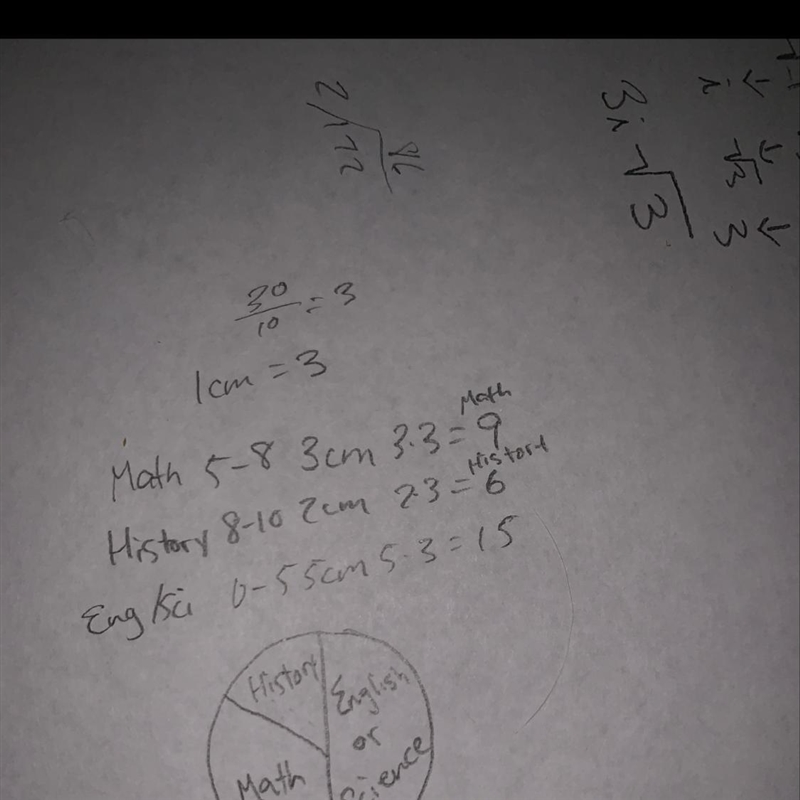 86
2√172
i √3 3
3i√3
30/10 = 3
1cm = 3
Math 5-8 3cm 3·3 = 9 Math
History 8-10 2cm 2·3 = 6 History
Eng/Sci 0-5 5cm 5·3 = 15
History
English
or
Science
Math